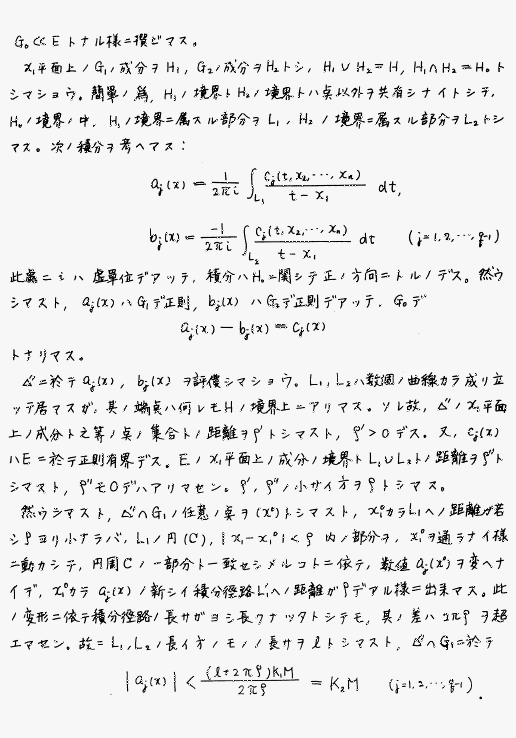 G₀≪E トナル様ニ撰ビマス。
x₁平面上ノ G₁ノ成分ヲ H₁, G₂ノ成分ヲ H₂トシ, H₁∪H₂=H, H₁∩H₂=H₀ト
シマショウ。簡單ノ為, H₁ノ境界ト H₂ノ境界トハ点以外ヲ共有シナイトシテ,
H₀ノ境界ノ中, H₁ノ境界ニ属スル部分ヲ L₁, H₂ノ境界ニ属スル部分ヲ L₂トシ
マス。次ノ積分ヲ考ヘマス:
aⱼ(x) = 1/2πi ∫_{L₁} cⱼ(t, x₂, ⋯, xₙ)/(t − x₁) dt,
bⱼ(x) = −1/2πi ∫_{L₂} cⱼ(t, x₂, ⋯, xₙ)/(t − x₁) dt (j=1, 2, ⋯, q−1)
此處ニ i ハ 虚單位デアッテ, 積分ハ H₀ニ関シテ正ノ方向ニトルノデス。然ウ
シマスト, aⱼ(x) ハ G₁デ正則, bⱼ(x) ハ G₂デ正則デアッテ, G₀デ
aⱼ(x) − bⱼ(x) = cⱼ(x)
トナリマス。
Δ′ニ於テ aⱼ(x), bⱼ(x) ヲ評價シマショウ。L₁, L₂ハ数個ノ曲線カラ成リ立
ッテ居マスガ, 其ノ端点ハ何レモ Hノ境界上ニアリマス。ソレ故, Δ′ノ x₁平面
上ノ成分ト之等ノ点ノ集合トノ距離ヲ ρ′トシマスト, ρ′>0 デス。又, cⱼ(x)
ハ E ニ於テ正則有界デス。E ノ x₁平面上ノ成分ノ境界ト L₁∪L₂トノ距離ヲ ρ″ト
シマスト, ρ″モ 0 デハアリマセン。ρ′, ρ″ノ小サイ方ヲ ρトシマス。
然ウシマスト, Δ′∩G₁ノ任意ノ点ヲ (x⁰)トシマスト, x₁⁰カラ L₁ヘノ距離ガ若
シ ρヨリ小ナラバ, L₁ノ円 (C), |x₁−x₁⁰|<ρ 内ノ部分ヲ, x₁⁰ヲ通ラナイ様
ニ動カシテ, 円周 C ノ一部分ト一致セシメルコトニ依テ, 数値 aⱼ(x⁰)ヲ変ヘナ
イデ, x₁⁰カラ aⱼ(x)ノ新シイ積分徑路 L₁′ヘノ距離ガ ρデアル様ニ出来マス。此
ノ変形ニ依テ積分徑路ノ長サガヨシ長クナッタトシテモ, 其ノ差ハ 2πρ ヲ超
エマセン。故ニ L₁, L₂ノ長イ方ノモノノ長サヲ lトシマスト, Δ′∩G₁ニ於テ
|aⱼ(x)| < (l+2πρ)K₁M/2πρ = K₂M (j=1, 2, ⋯, q−1).